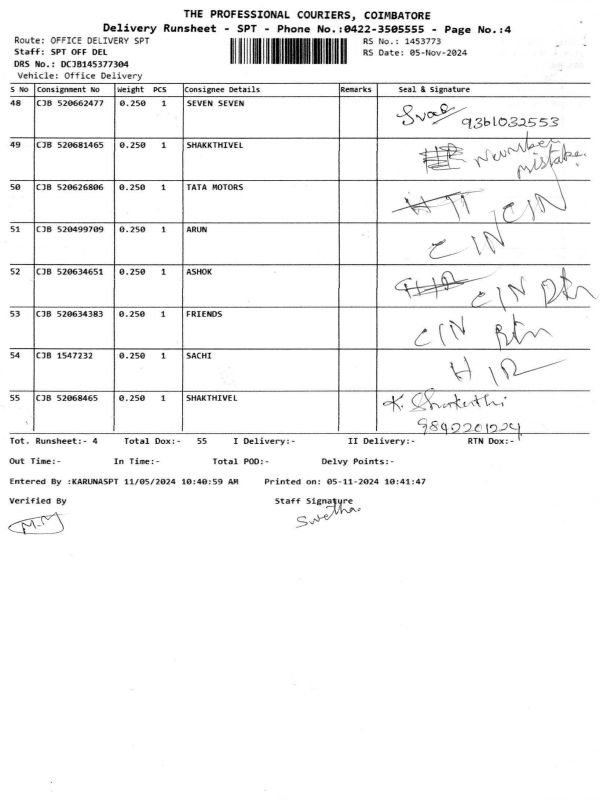 THE PROFESSIONAL COURIERS, COIMBATORE
Delivery Runsheet - SPT - Phone No.:0422-3505555 - Page No.:4
Route: OFFICE DELIVERY SPT RS No.: 1453773
Staff: SPT OFF DEL RS Date: 05-Nov-2024
DRS No.: DCJB145377304
Vehicle: Office Delivery
S No Consignment No Weight PCS Consignee Details Remarks Seal & Signature
48 CJB 520662477 0.250 1 SEVEN SEVEN
9361032553
49 CJB 520681465 0.250 1 SHAKKTHIVEL Number
mistake.
50 CJB 520626806 0.250 1 TATA MOTORS CIN
51 CJB 520499709 0.250 1 ARUN CIN
52 CJB 520634651 0.250 1 ASHOK CIN Rtn
53 CJB 520634383 0.250 1 FRIENDS CIN Rtn
54 CJB 1547232 0.250 1 SACHI
55 CJB 52068465 0.250 1 SHAKTHIVEL K. Shakthi
9842201224
Tot. Runsheet:- 4 Total Dox:- 55 I Delivery:- II Delivery:- RTN Dox:-
Out Time:- In Time:- Total POD:- Delvy Points:-
Entered By :KARUNASPT 11/05/2024 10:40:59 AM Printed on: 05-11-2024 10:41:47
Verified By Staff Signature
M.M Swetha.